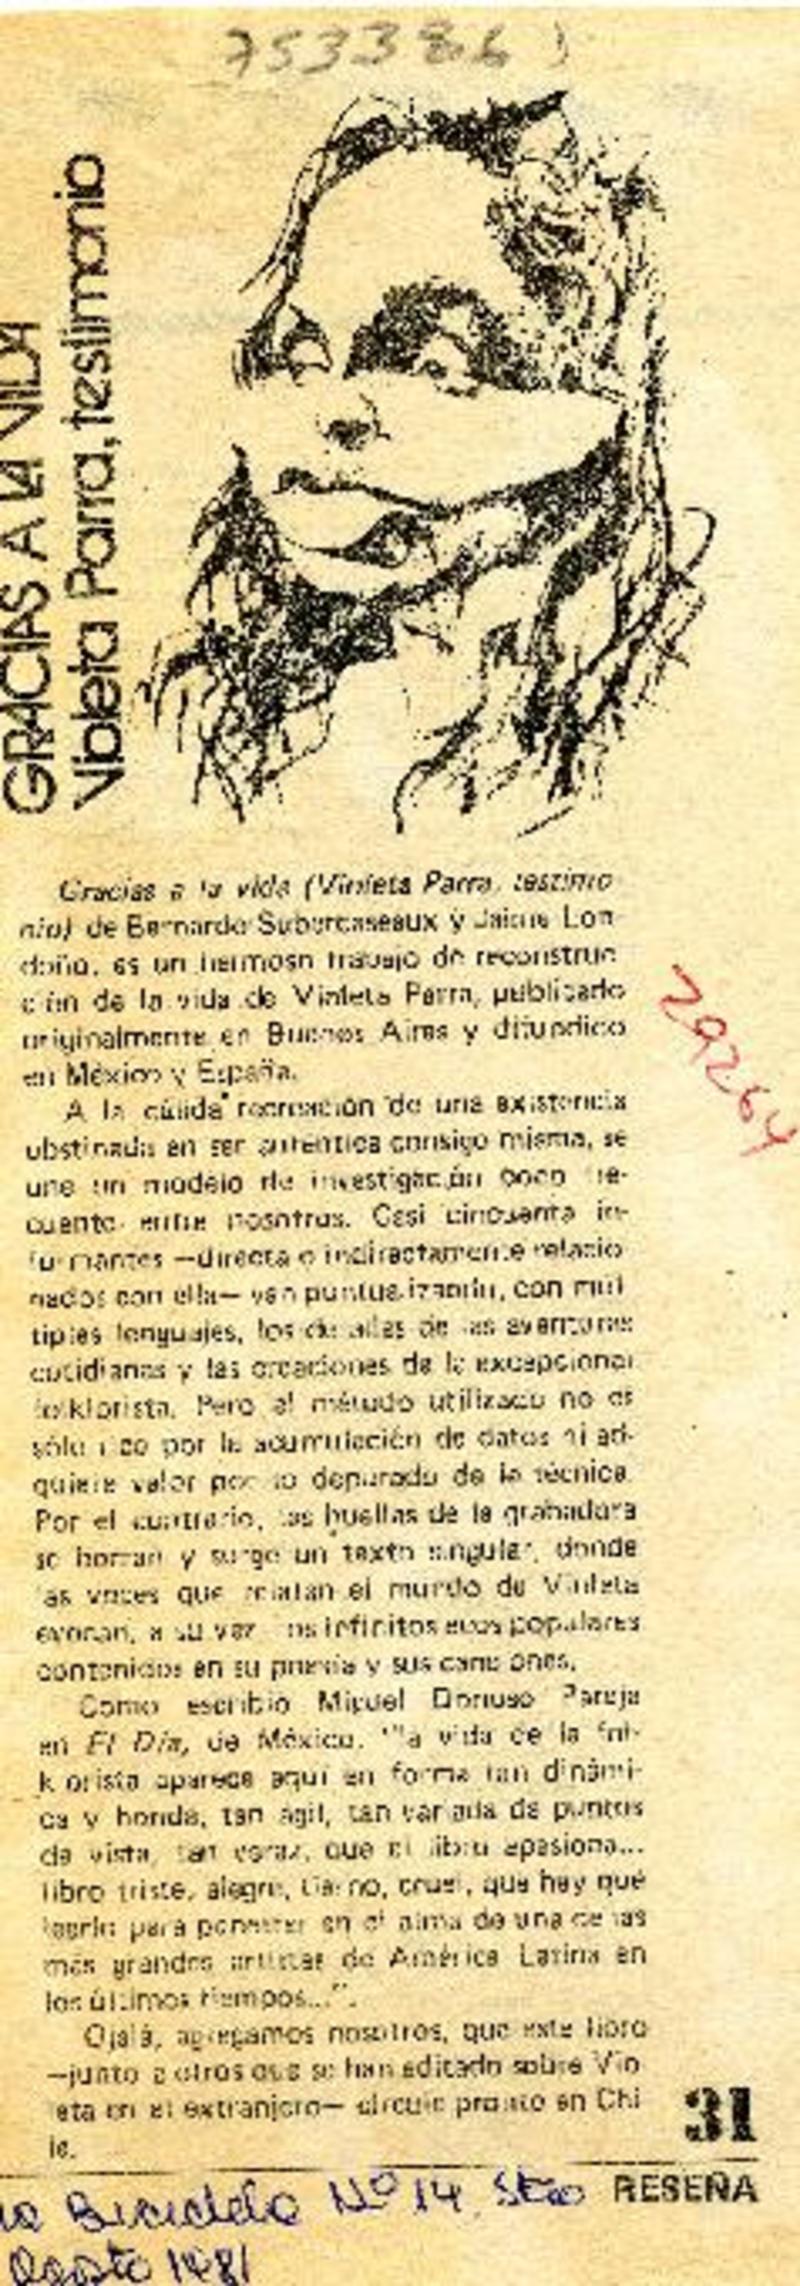 753386)
GRACIAS A LA VIDA
Violeta Parra, testimonio
Gracias a la vida (Violeta Parra, testimo-
nio) de Bernardo Subercaseaux y Jaime Lon-
doño, es un hermoso trabajo de reconstruc-
ción de la vida de Violeta Parra, publicado
originalmente en Buenos Aires y difundido
en México y España.
A la cálida recreación de una existencia
obstinada en ser auténtica consigo misma, se
une un modelo de investigación poco fre-
cuente entre nosotros. Casi cincuenta in-
formantes —directa o indirectamente relacio-
nados con ella— van puntualizando, con múl-
tiples lenguajes, los detalles de las aventuras
cotidianas y las creaciones de la excepcional
folklorista. Pero el método utilizado no es
sólo rico por la acumulación de datos ni ad-
quiere valor por lo depurado de la técnica.
Por el contrario, las huellas de la grabadora
se borran y surge un texto singular, donde
las voces que relatan el mundo de Violeta
evocan, a su vez, los infinitos ecos populares
contenidos en su poesía y sus canciones.
Como escribió Miguel Donoso Pareja
en El Día, de México, "la vida de la fol-
klorista aparece aquí en forma tan dinámi-
ca y honda, tan ágil, tan variada de puntos
de vista, tan veraz, que el libro apasiona...
libro triste, alegre, tierno, cruel, que hay que
leerlo para penetrar en el alma de una de las
más grandes artistas de América Latina en
los últimos tiempos...".
Ojalá, agregamos nosotros, que este libro
—junto a otros que se han editado sobre Vio-
leta en el extranjero— circule pronto en Chi-
le.
29264
31
RESEÑA
Bicicleta Nº 14. Stgo
Agosto 1981